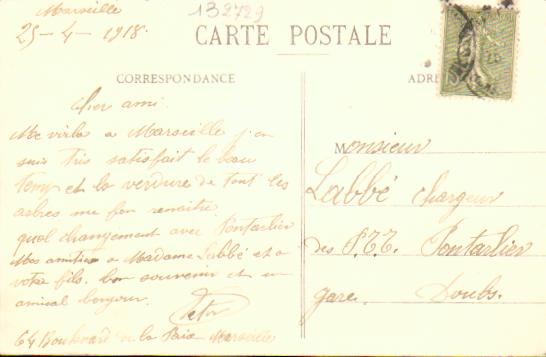 Marseille
25-4-1918.
132729
CARTE POSTALE
CORRESPONDANCE
ADRE
Cher ami.
Me voila a Marseille j'en
suis tres satisfait le beau
temp et la verdure de tout les
arbres me fon renaitre
quel changement avec Pontarlier
Mes amities a Madame Labbé et a
votre fils. bon souvenir et un
amical bonjour.
64 Boulevard de la Paix Marseille
Monsieur
Labbé chargeur
des P.T.T. Pontarlier
gare. Doubs.